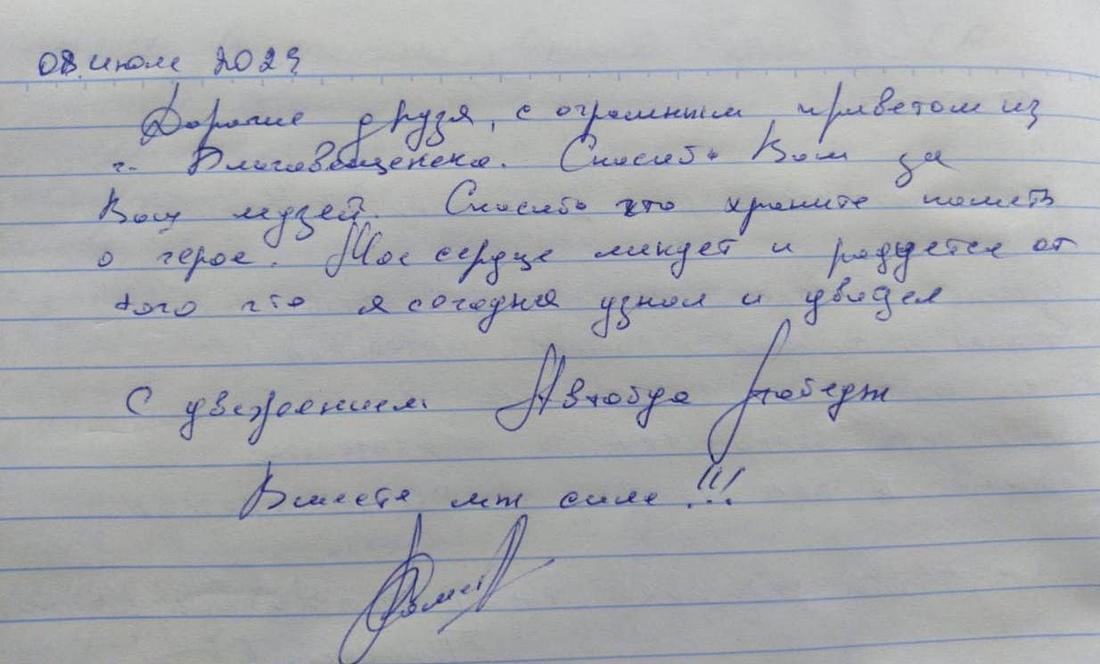 08 июля 2024
Дорогие друзья, с огромным приветом из
г. Благовещенска. Спасибо Вам за
Ваш музей. Спасибо что храните память
о герое. Мое сердце ликует и радуется от
того что я сегодня узнал и увидел
С уважением Автобус Победы
Вместе мы сила!!!